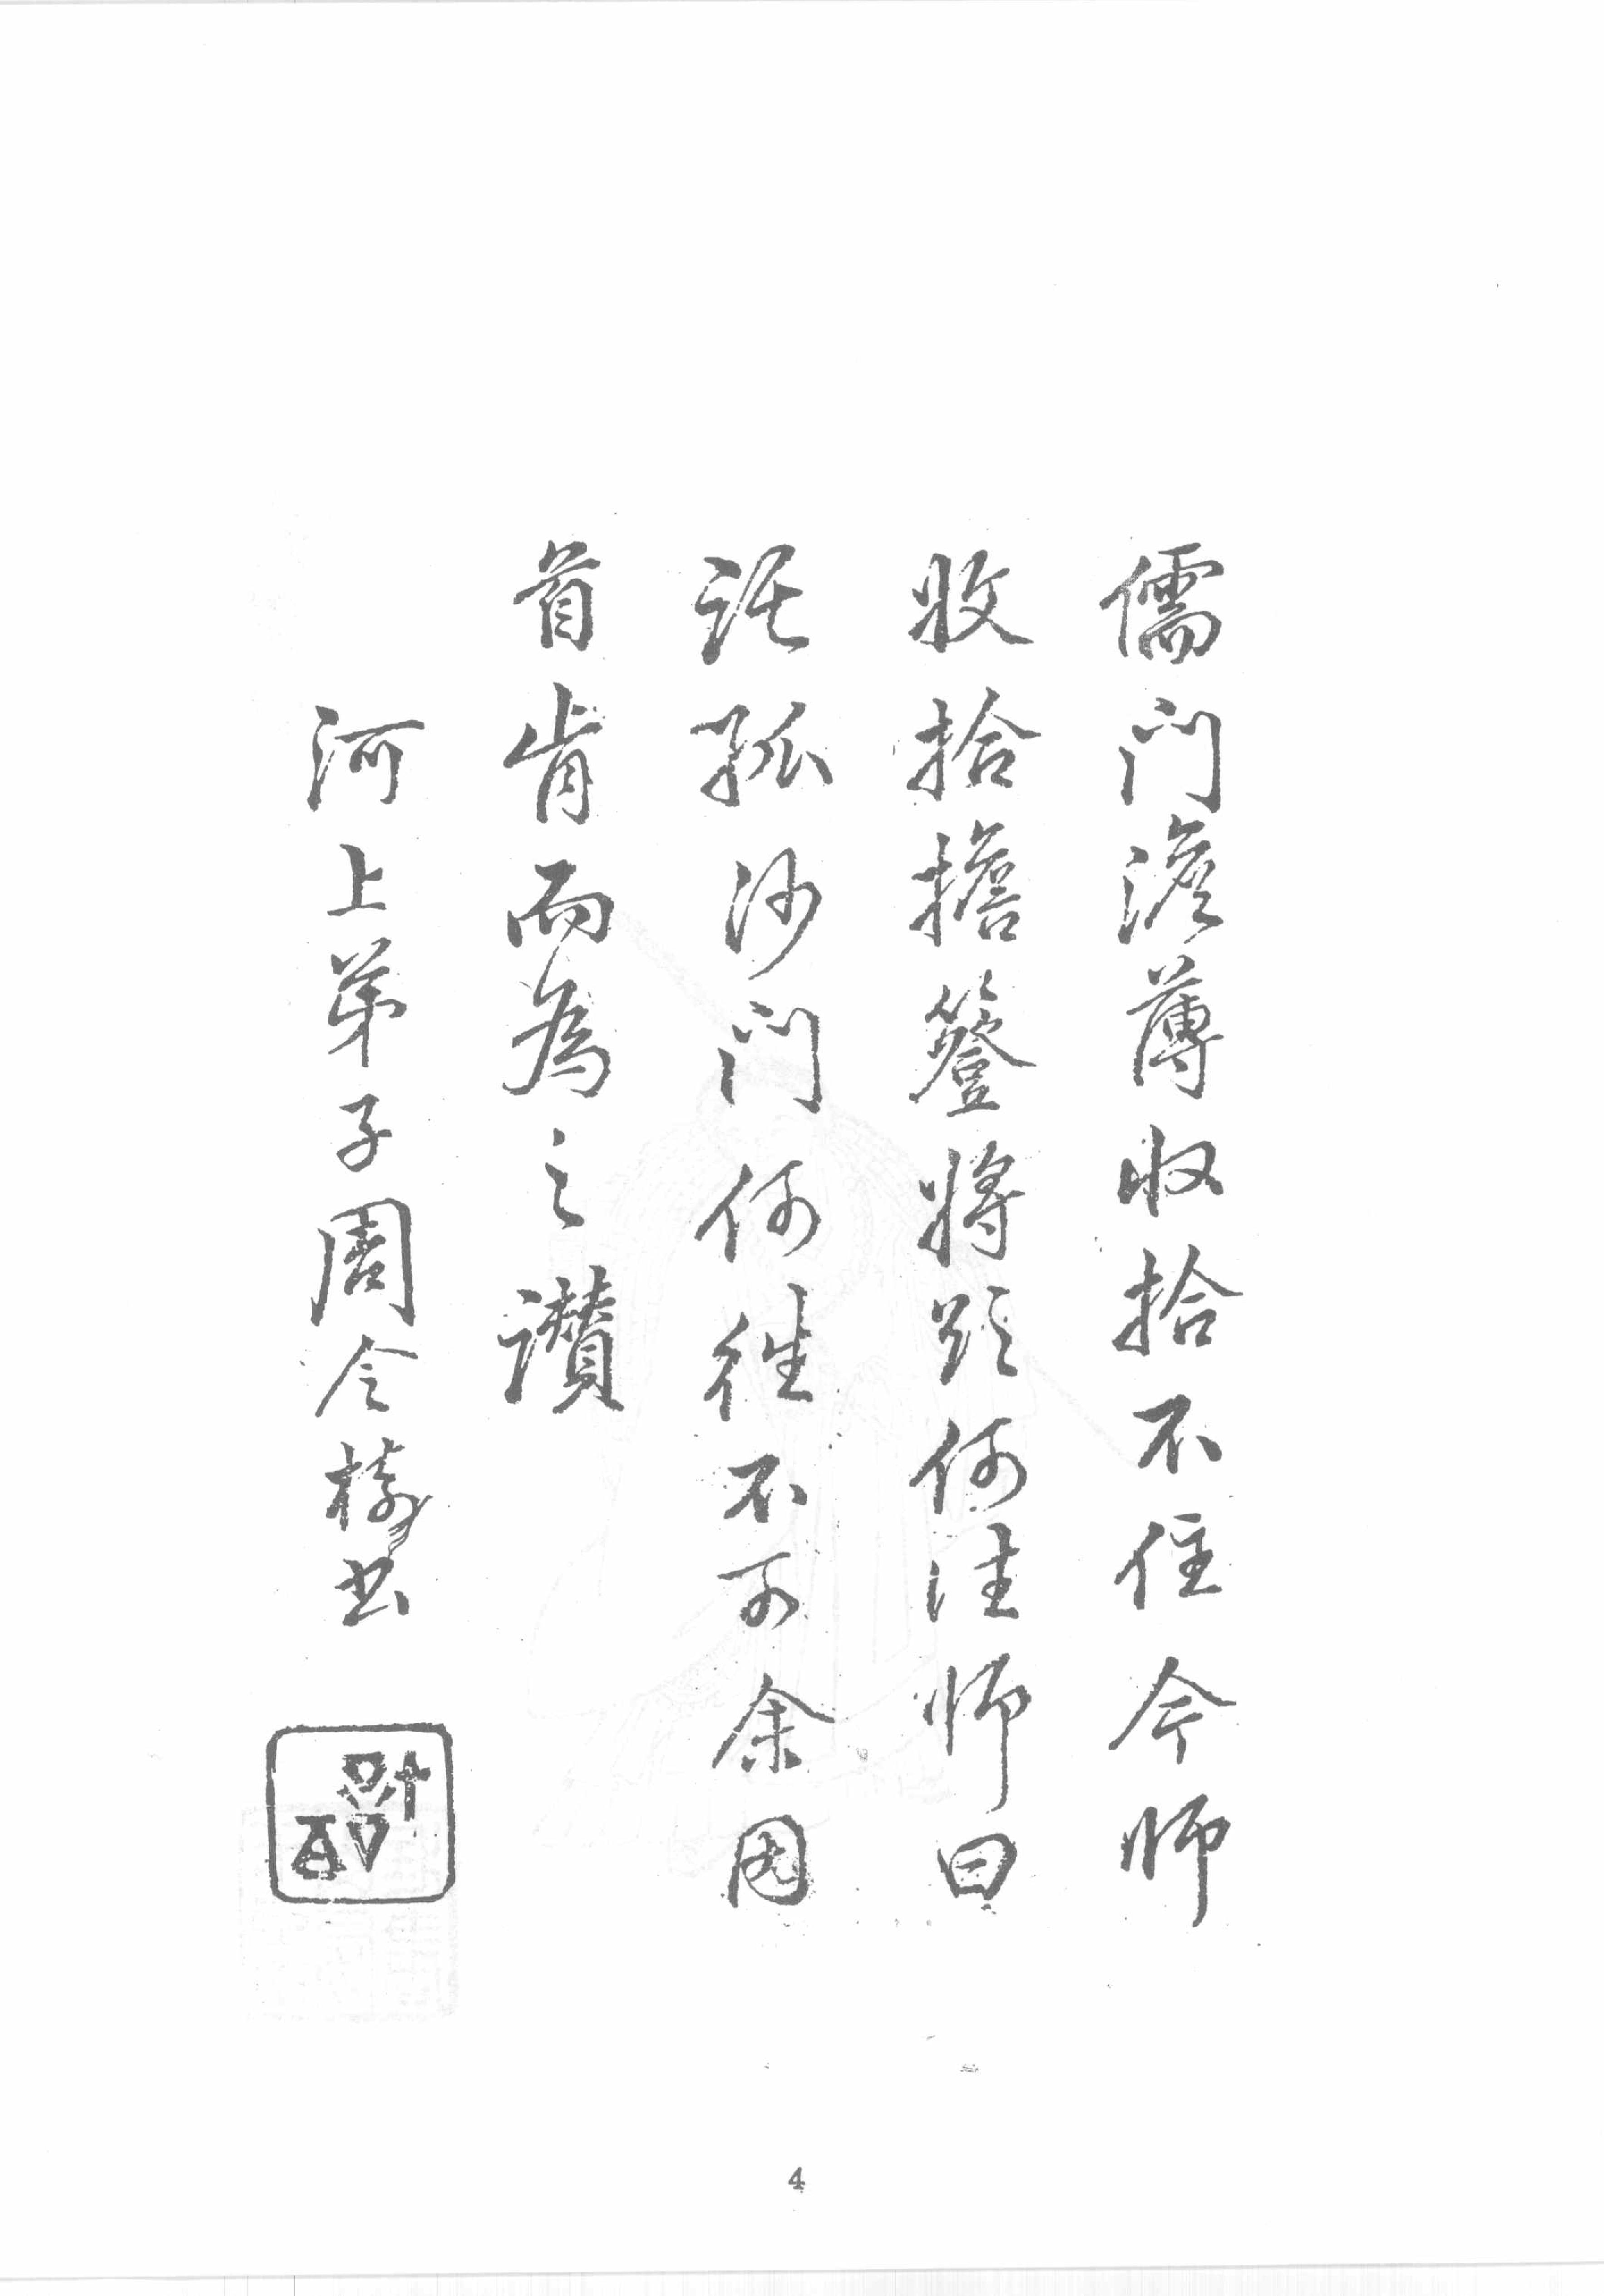 儒門澹薄收拾不住今師
收拾擔簦將欲何往師曰
託孤沙門何往不可余因
首肯而為之讚
河上弟子周令樹書
4